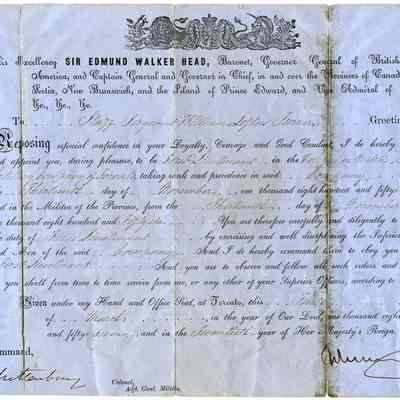 is Excellency SIR EDMUND WALKER HEAD, Baronet, Governor General of British
America, and Captain General and Governor in Chief, in and over the Provinces of Canad
Scotia, New Brunswick, and the Island of Prince Edward, and Vice Admiral of
&c., &c., &c.
To Greetin
Reposing special confidence in your Loyalty, Courage and Good Conduct, I do hereby
appoint you, during pleasure, to be in the
taking rank and precedence in said Company
Thirteenth day of November one thousand eight hundred and fifty-
in the Militia of the Province, from the Thirteenth day of November
thousand eight hundred and You are therefore carefully and diligently to
duty of by exercising and well disciplining the Inferior
and Men of the said Company And I do hereby command them to obey you
Lieutenant And you are to observe and follow all such orders and
you shall from time to time receive from me, or any other of your Superior Officers, according to
Given under my Hand and Office Seal, at Toronto, this
of March in the year of Our Lord one thousand eight
and fifty-seven and in the Twentieth year of Her Majesty's Reign.
ommand,
Colonel,
Adjt. Genl. Militia.